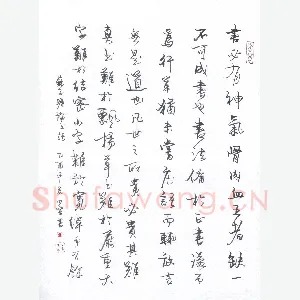 書必有神氣骨肉血五者缺一
不可成書也書法備於正書溢而
為行草猶未嘗莊語而輒放言
無是道也凡世之所貴必貴其難
真書難於飄揚草書難於嚴重大
字難於結密小字難於寬綽而有餘
Shufawang.CN